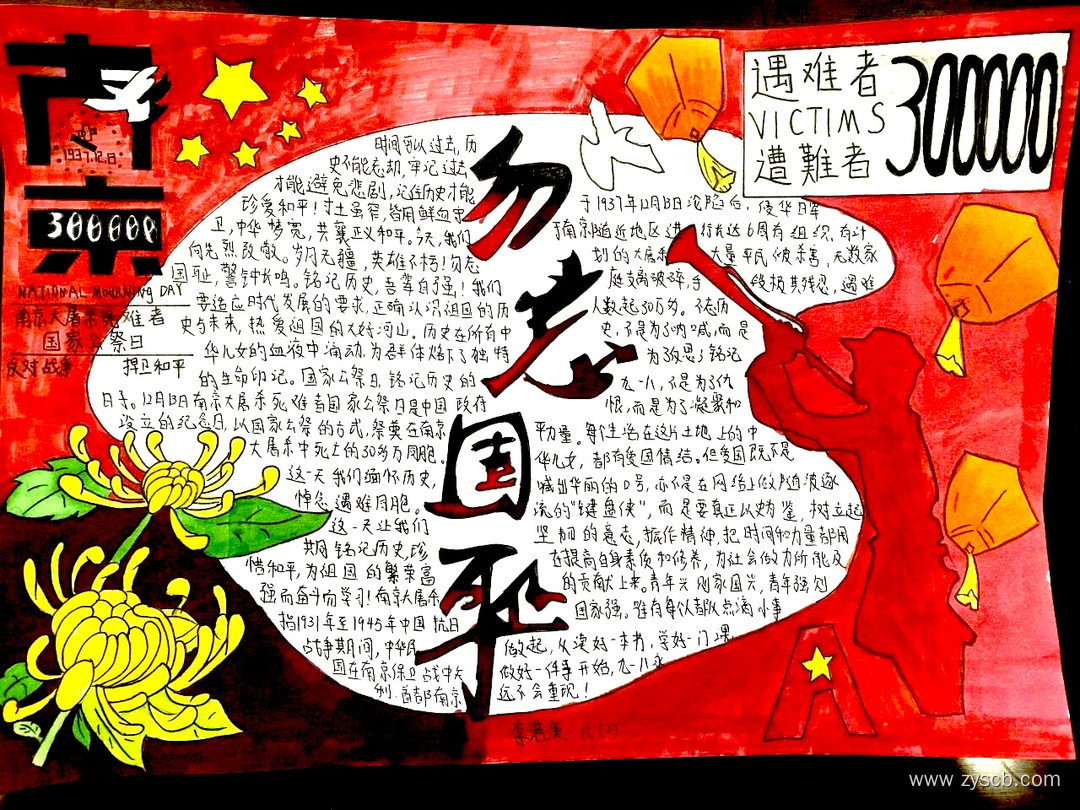 1937.12.13
300000
NATIONAL MOURNING DAY
南京大屠杀死难者
国家公祭日
反对战争 捍卫和平
遇难者
VICTIMS
遭難者
300000
勿忘国耻
时间可以过去,历
史不能忘却,牢记过去
才能避免悲剧,记住历史才能
珍爱和平!寸土虽窄,皆用鲜血守
卫,中华梦宽,共襄正义和平。今天,我们
向先烈致敬。岁月无疆,英雄不朽!勿忘
国耻,警钟长鸣。铭记历史,吾辈自强!我们
要适应时代发展的要求,正确认识祖国的历
史与未来,热爱祖国的大好河山。历史在所有中
华儿女的血液中涌动,为群体烙下了独特
的生命印记。国家公祭日,铭记历史的
日子。12月13日南京大屠杀死难者国家公祭日是中国政府
设立的纪念日,以国家公祭的方式,祭奠在南京
大屠杀中死亡的30多万同胞。
这一天我们缅怀历史,
悼念遇难同胞。
这一天让我们
共同铭记历史,珍
惜和平,为祖国的繁荣富
强而奋斗而学习!南京大屠杀
指1931年至1945年中国抗日
战争期间,中华民
国在南京保卫战中失
利、首都南京
于1937年12月13日沦陷后,侵华日军
于南京附近地区进行长达6周有组织、有计
划的大屠杀 大量平民被杀害,无数家
庭支离破碎,手段极其残忍,遇难
人数超30万。不忘历
史,不是为了呐喊,而是
为了反思;铭记
九一八,不是为了仇
恨,而是为了凝聚和
平力量。每个生活在这片土地上的中
华儿女,都有爱国情结。但爱国既不是
喊出华丽的口号,亦不是在网络上做随波逐
流的"键盘侠",而是要真正以史为鉴,树立起
坚韧的意志,振作精神,把时间和力量都用
在提高自身素质和修养,为社会做力所能及
的贡献上来。青年兴则家国兴,青年强则
国家强。唯有每个人都从点滴小事
做起,从读好一本书,学好一门课,
做好一件事开始,九一八永
远不会重现!
www.zyscb.com